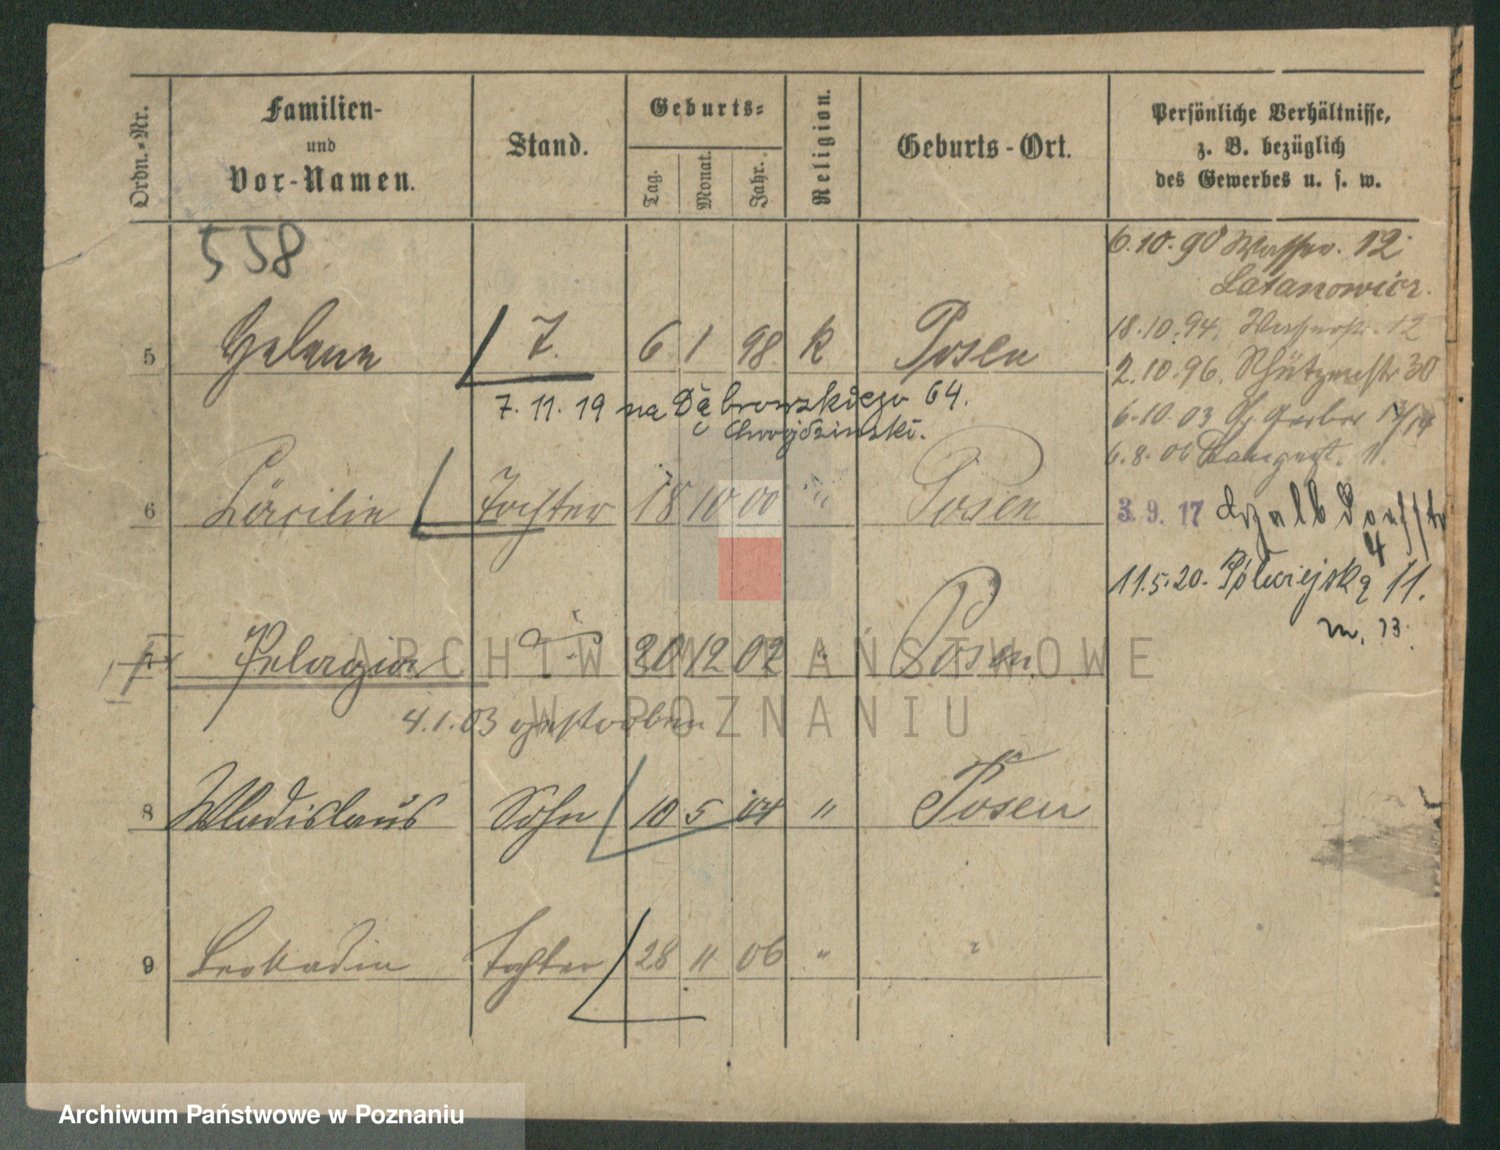 Ordn.-Nr. Familien- und Vor-Namen. Stand. Geburts- Tag. Monat. Jahr. Religion. Geburts-Ort. Persönliche Verhältnisse, z. B. bezüglich des Gewerbes u. s. w.
558
6.10.90 Wasser. 12
Latanowicz.
18.10.94. Wasserstr. 12
5 Helene T. 6 1 98 K Posen
2.10.96. Schützenstr 30
7.11.19 na Dąbrowskiego 64.
Chwojdzinski.
6.10.03 Gerber 13/14
6.8.06 11.
6 Cäcilie Tochter 18 10 00 " Posen
3.9.17 4
11.5.20. Półwiejska 11.
m. 13.
7 Pelagia 20 12 02 " Posen
4.1.03 gestorben
8 Wladislaus Sohn 10 5 04 " Posen
9 Leokadia Tochter 28 11 06 " "
ARCHIWUM PAŃSTWOWE
W POZNANIU
Archiwum Państwowe w Poznaniu